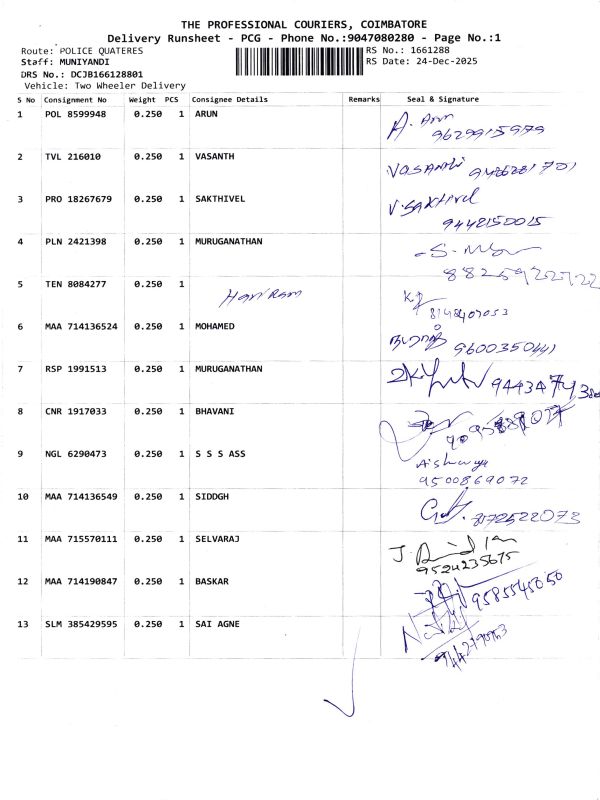 THE PROFESSIONAL COURIERS, COIMBATORE
Delivery Runsheet - PCG - Phone No.:9047080280 - Page No.:1
Route: POLICE QUATERES RS No.: 1661288
Staff: MUNIYANDI RS Date: 24-Dec-2025
DRS No.: DCJB166128801
Vehicle: Two Wheeler Delivery
S No Consignment No Weight PCS Consignee Details Remarks Seal & Signature
1 POL 8599948 0.250 1 ARUN A. Arun
9629915979
2 TVL 216010 0.250 1 VASANTH VASANTH
3 PRO 18267679 0.250 1 SAKTHIVEL V. SAKTHIVEL
9442150015
4 PLN 2421398 0.250 1 MURUGANATHAN
5 TEN 8084277 0.250 1 Hariram
8148407053
6 MAA 714136524 0.250 1 MOHAMED
9600350441
7 RSP 1991513 0.250 1 MURUGANATHAN
8 CNR 1917033 0.250 1 BHAVANI
9 NGL 6290473 0.250 1 S S S ASS Aishwarya
9500869072
10 MAA 714136549 0.250 1 SIDDGH 8172522073
11 MAA 715570111 0.250 1 SELVARAJ
9524235675
12 MAA 714190847 0.250 1 BASKAR 9585545050
13 SLM 385429595 0.250 1 SAI AGNE